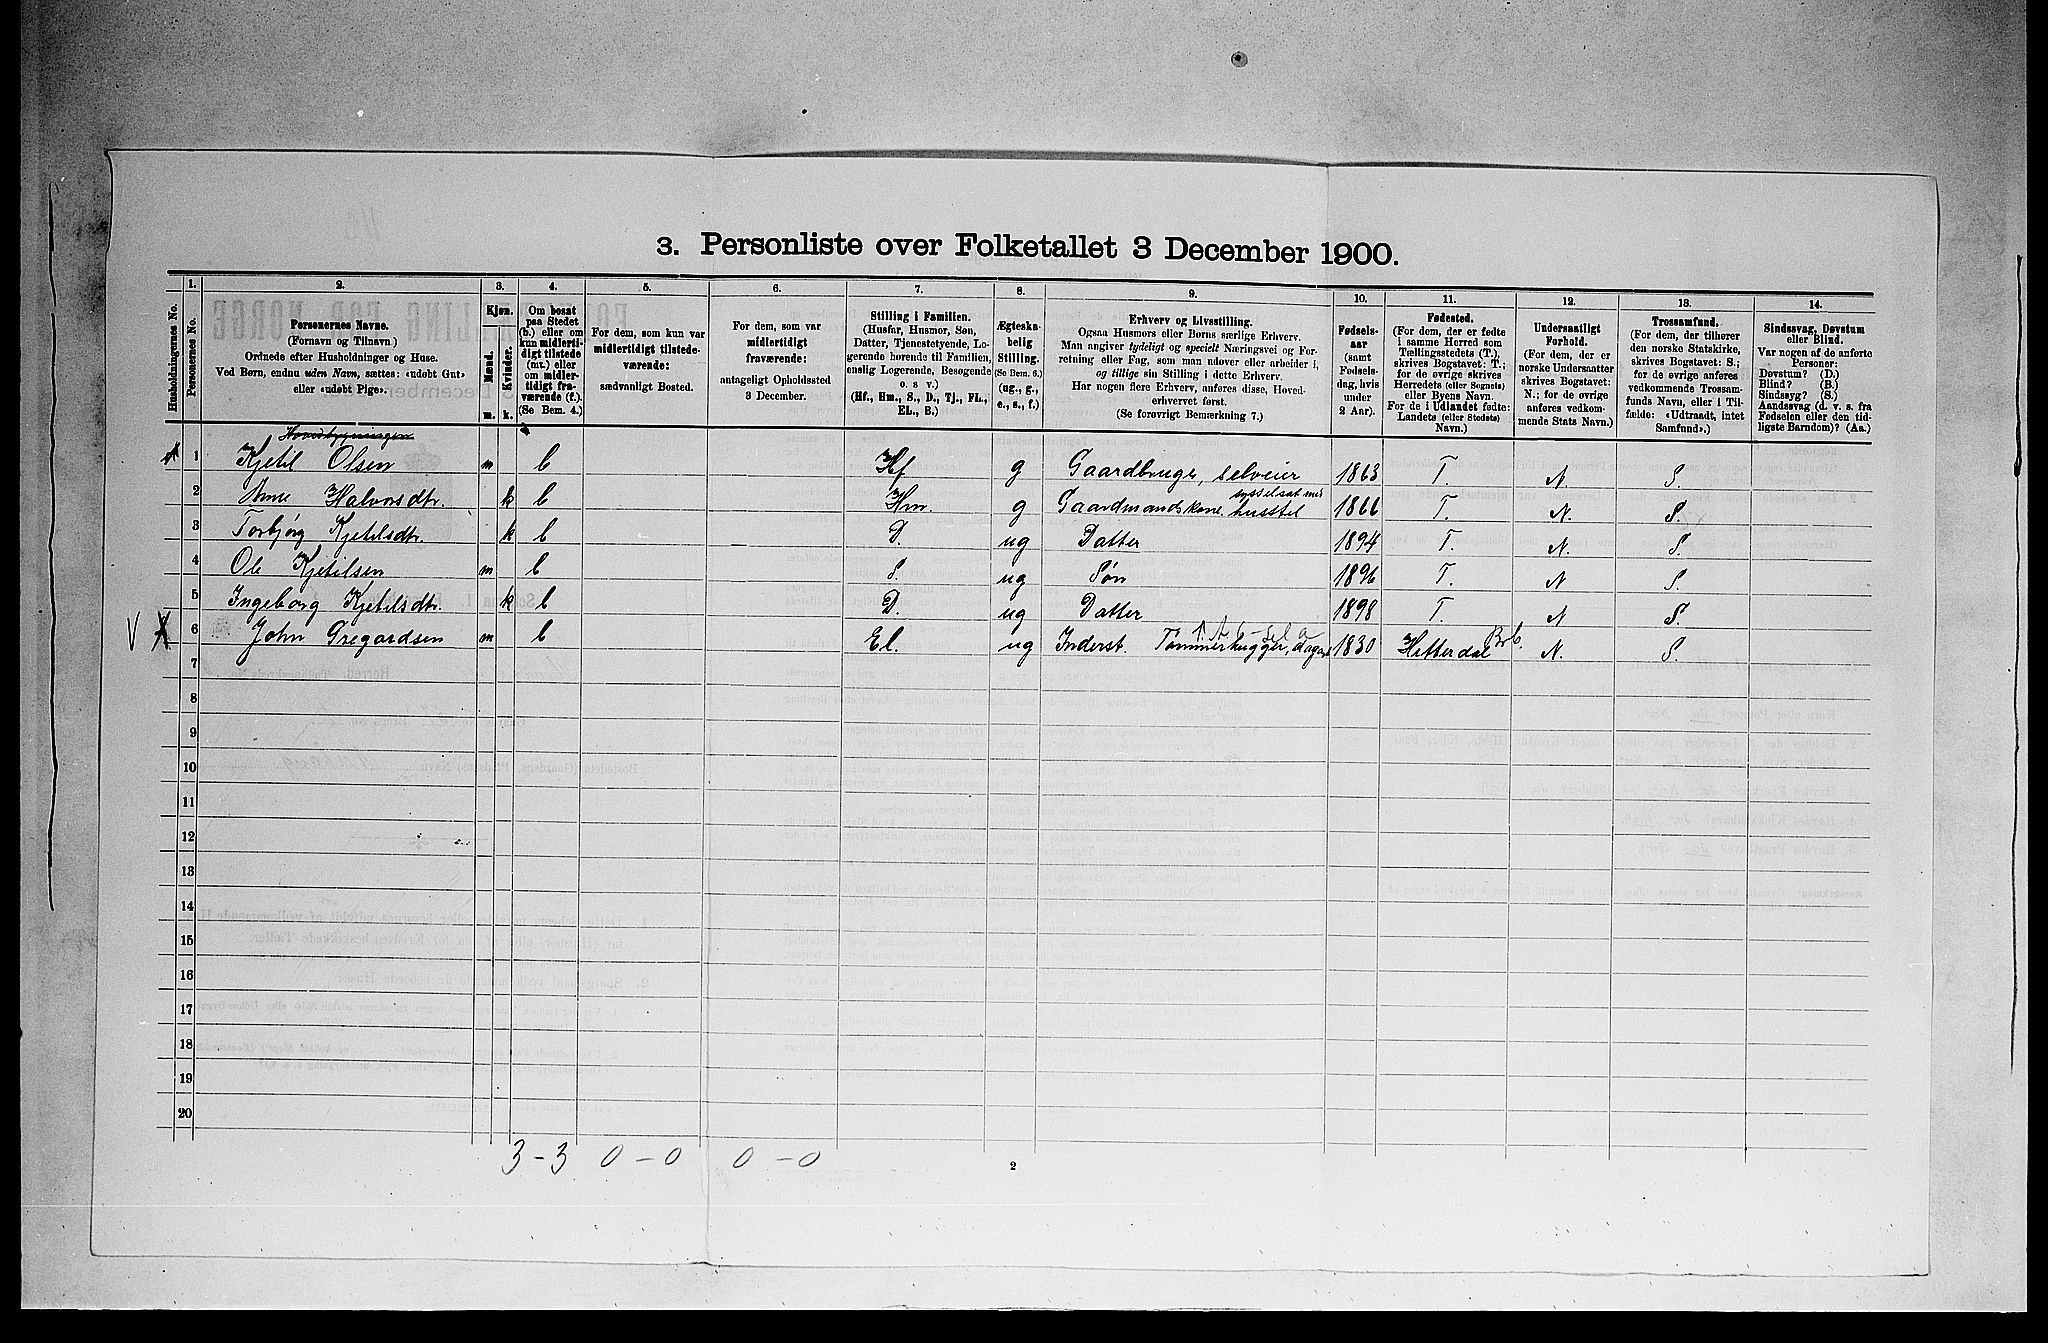 3. Personliste over Folketallet 3 December 1900.
Husholdningernes No.
1.
Personernes No.
2.
Personernes Navne.
(Fornavn og Tilnavn.)
Ordnede efter Husholdninger og Huse.
Ved Børn, endnu uden Navn, sættes: «udøbt Gut»
eller «udøbt Pige».
3.
Kjøn.
Mænd.
Kvinder.
m.
k.
4.
Om bosat
paa Stedet
(b.) eller om
kun midlerti-
digt tilstede
(mt.) eller
om midler-
tidigt fra-
værende (f.).
(Se Bem. 4.)
5.
For dem, som kun var
midlertidigt tilstede-
værende:
sædvanligt Bosted.
6.
For dem, som var
midlertidigt
fraværende:
antageligt Opholdssted
3 December.
7.
Stilling i Familien.
(Husfar, Husmor, Søn,
Datter, Tjenestetyende, Lo-
gerende hørende til Familien,
enslig Logerende, Besøgende
o. s v.)
(Hf., Hm., S., D., Tj., FL.,
EL., B.)
8.
Ægteska-
belig
Stilling.
(Se Bem. 6.)
(ug., g.,
e., s., f.)
9.
Erhverv og Livsstilling.
Ogsaa Husmors eller Børns særlige Erhverv.
Man angiver tydeligt og specielt Næringsvei og For-
retning eller Fag, som man udøver eller arbeider i,
og tillige sin Stilling i dette Erhverv.
Har nogen flere Erhverv, anføres disse, Hoved-
erhvervet først.
(Se forøvrigt Bemærkning 7.)
10.
Fødsels-
aar
(samt
Fødsels-
dag, hvis
under
2 Aar).
11.
Fødested.
(For dem, der er fødte
i samme Herred som
Tællingsstedets (T.),
skrives Bogstavet: T.;
for de øvrige skrives
Herredets (eller Sognets)
eller Byens Navn.
For de i Udlandet fødte:
Landets (eller Stedets)
Navn.)
12.
Undersaatligt
Forhold.
(For dem, der er
norske Undersaatter
skrives Bogstavet:
N.; for de øvrige
anføres vedkom-
mende Stats Navn.)
13.
Trossamfund.
(For dem, der tilhører
den norske Statskirke,
skrives Bogstavet: S.;
for de øvrige anføres
vedkommende Trossam-
funds Navn, eller i Til-
fælde: «Udtraadt, intet
Samfund».)
14.
Sindssvag, Døvstum
eller Blind.
Var nogen af de anførte
Personer:
Døvstum? (D.)
Blind? (B.)
Sindssyg? (S.)
Aandssvag (d. v. s. fra
Fødselen eller den tid-
ligste Barndom)? (Aa.)
Hovedbygningen
1 Kjetil Olsen m b Hf g Gaardbruger, selveier 1863 T. N. S.
2 Anne Halvorsdtr. k b Hm. g Gaardmandskone. sysselsat med husstel 1866 T. N. S.
3 Torbjørg Kjetilsdtr. k b D. ug Datter 1894 T. N. S.
4 Ole Kjetilsen m b S. ug Søn 1896 T. N S.
5 Ingeborg Kjetilsdtr. k b D. ug Datter 1898 T. N S.
V X 6 John Gregardsen m b El. ug Inderst. Tømmerhugger, dagarb. 1830 Hitterdal N. S.
7
8
9
10
11
12
13
14
15
16
17
18
19
20
3 - 3 0 - 0 0 - 0
2